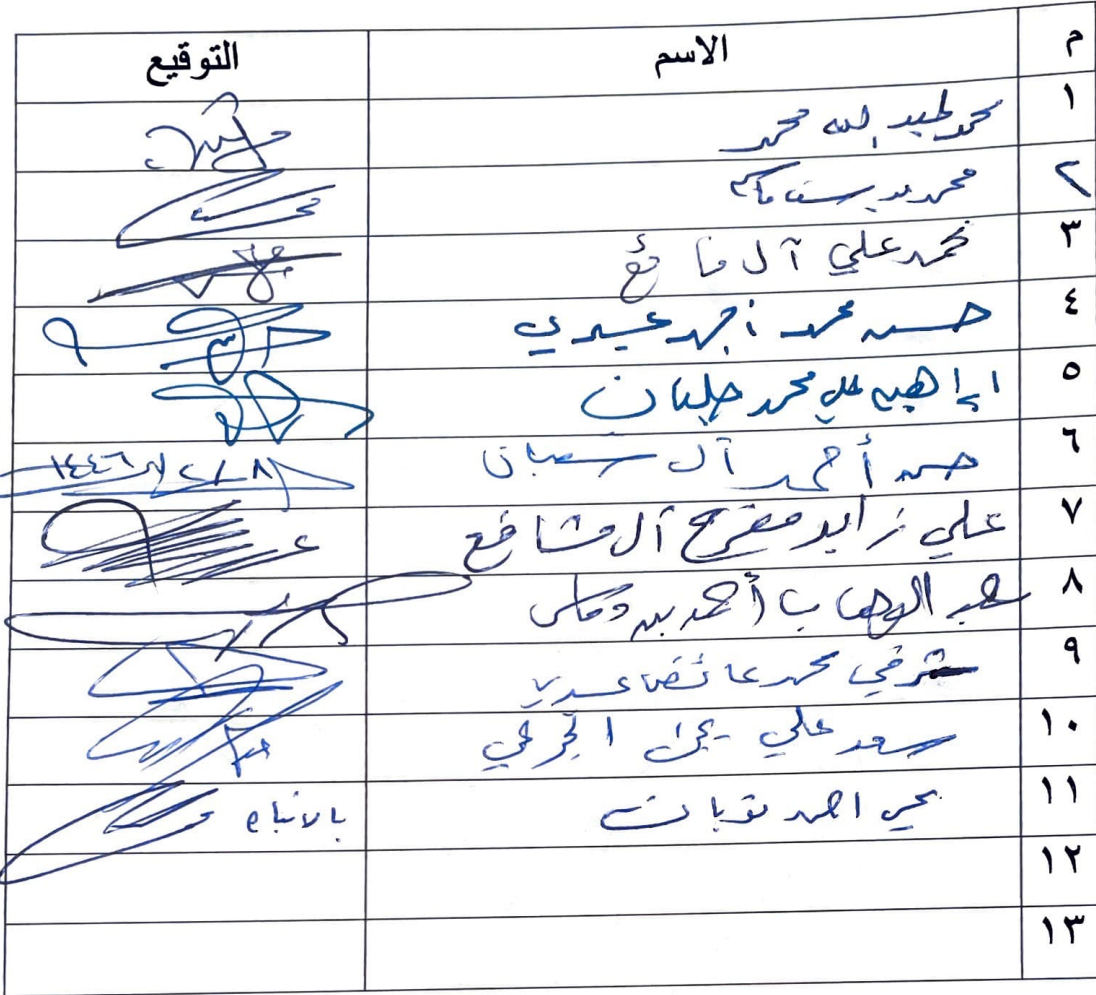 م الاسم التوقيع
١ محمد عبد الله محمد
٢ محمد
٣ محمد علي آل فائع
٤ حسن محمد أحمد عسيري
٥ ابراهيم علي محمد جلبان
٦ حسن أحمد آل شعبان
٧ علي زايد مفرح آل مشافع
٨ عبد الوهاب أحمد بن
٩ شرفي محمد عائض عسيري
١٠ سعد علي يحيى
١١ يحي احمد ثوبان
١٢
١٣